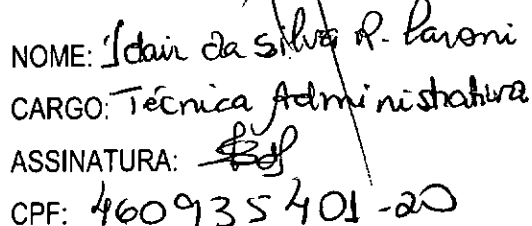 NOME: Idair da Silva R. Paroni
CARGO: Técnica Administrativa
ASSINATURA:
CPF: 460935401-20